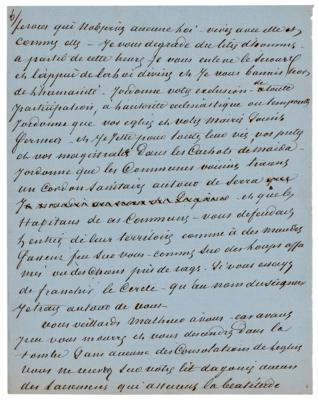 6/
ferous qui n'observera aucune loi - vivez avec elle et
comme elle - Je vous dégrade du titre d'hommes -
à partir de cette heure, Je vous enlève le secours
et l'appui de la loi divine et Je vous bannis
de l'humanité. J'ordonne votre exclusion à toute
participation, à l'autorité ecclésiastique ou temporelle
J'ordonne que vos églises et votre Mairie soient
fermées - et Je jette pour toute leur vie vos
et vos magistrats dans les Cachots de
J'ordonne que les Communes voisines tracent
un Cordon Sanitaire autour de Serra
et que les
Habitans de ces Communes - vous défendent
l'entrée de leur territoire comme à des
fassent feu sur vous - comme sur des loups affa
més ou des chiens pris de rage. Si vous essayez
de franchir le Cercle qu'au nom du seigneur
Je trace autour de vous
vous veillards malheur à vous - car avant
peu vous mourrez et vous descendrez dans la
tombe sans aucune des Consolations de l'église
vous ne recevrez sur votre lit d'agonie aucun
des Sacremens qui assurent la béatitude